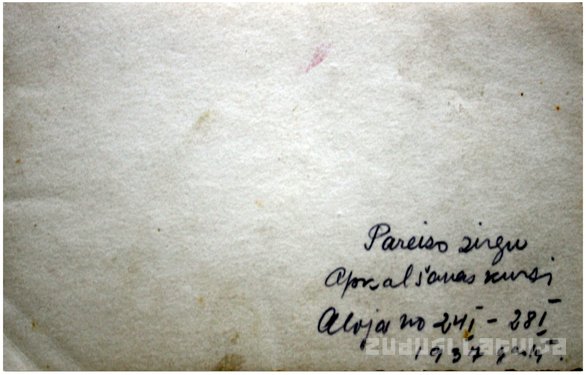 Pareizo zirgu
Apkalšanas kursi
Aloja no 24I – 28I
1937 g.
zudusilatvija